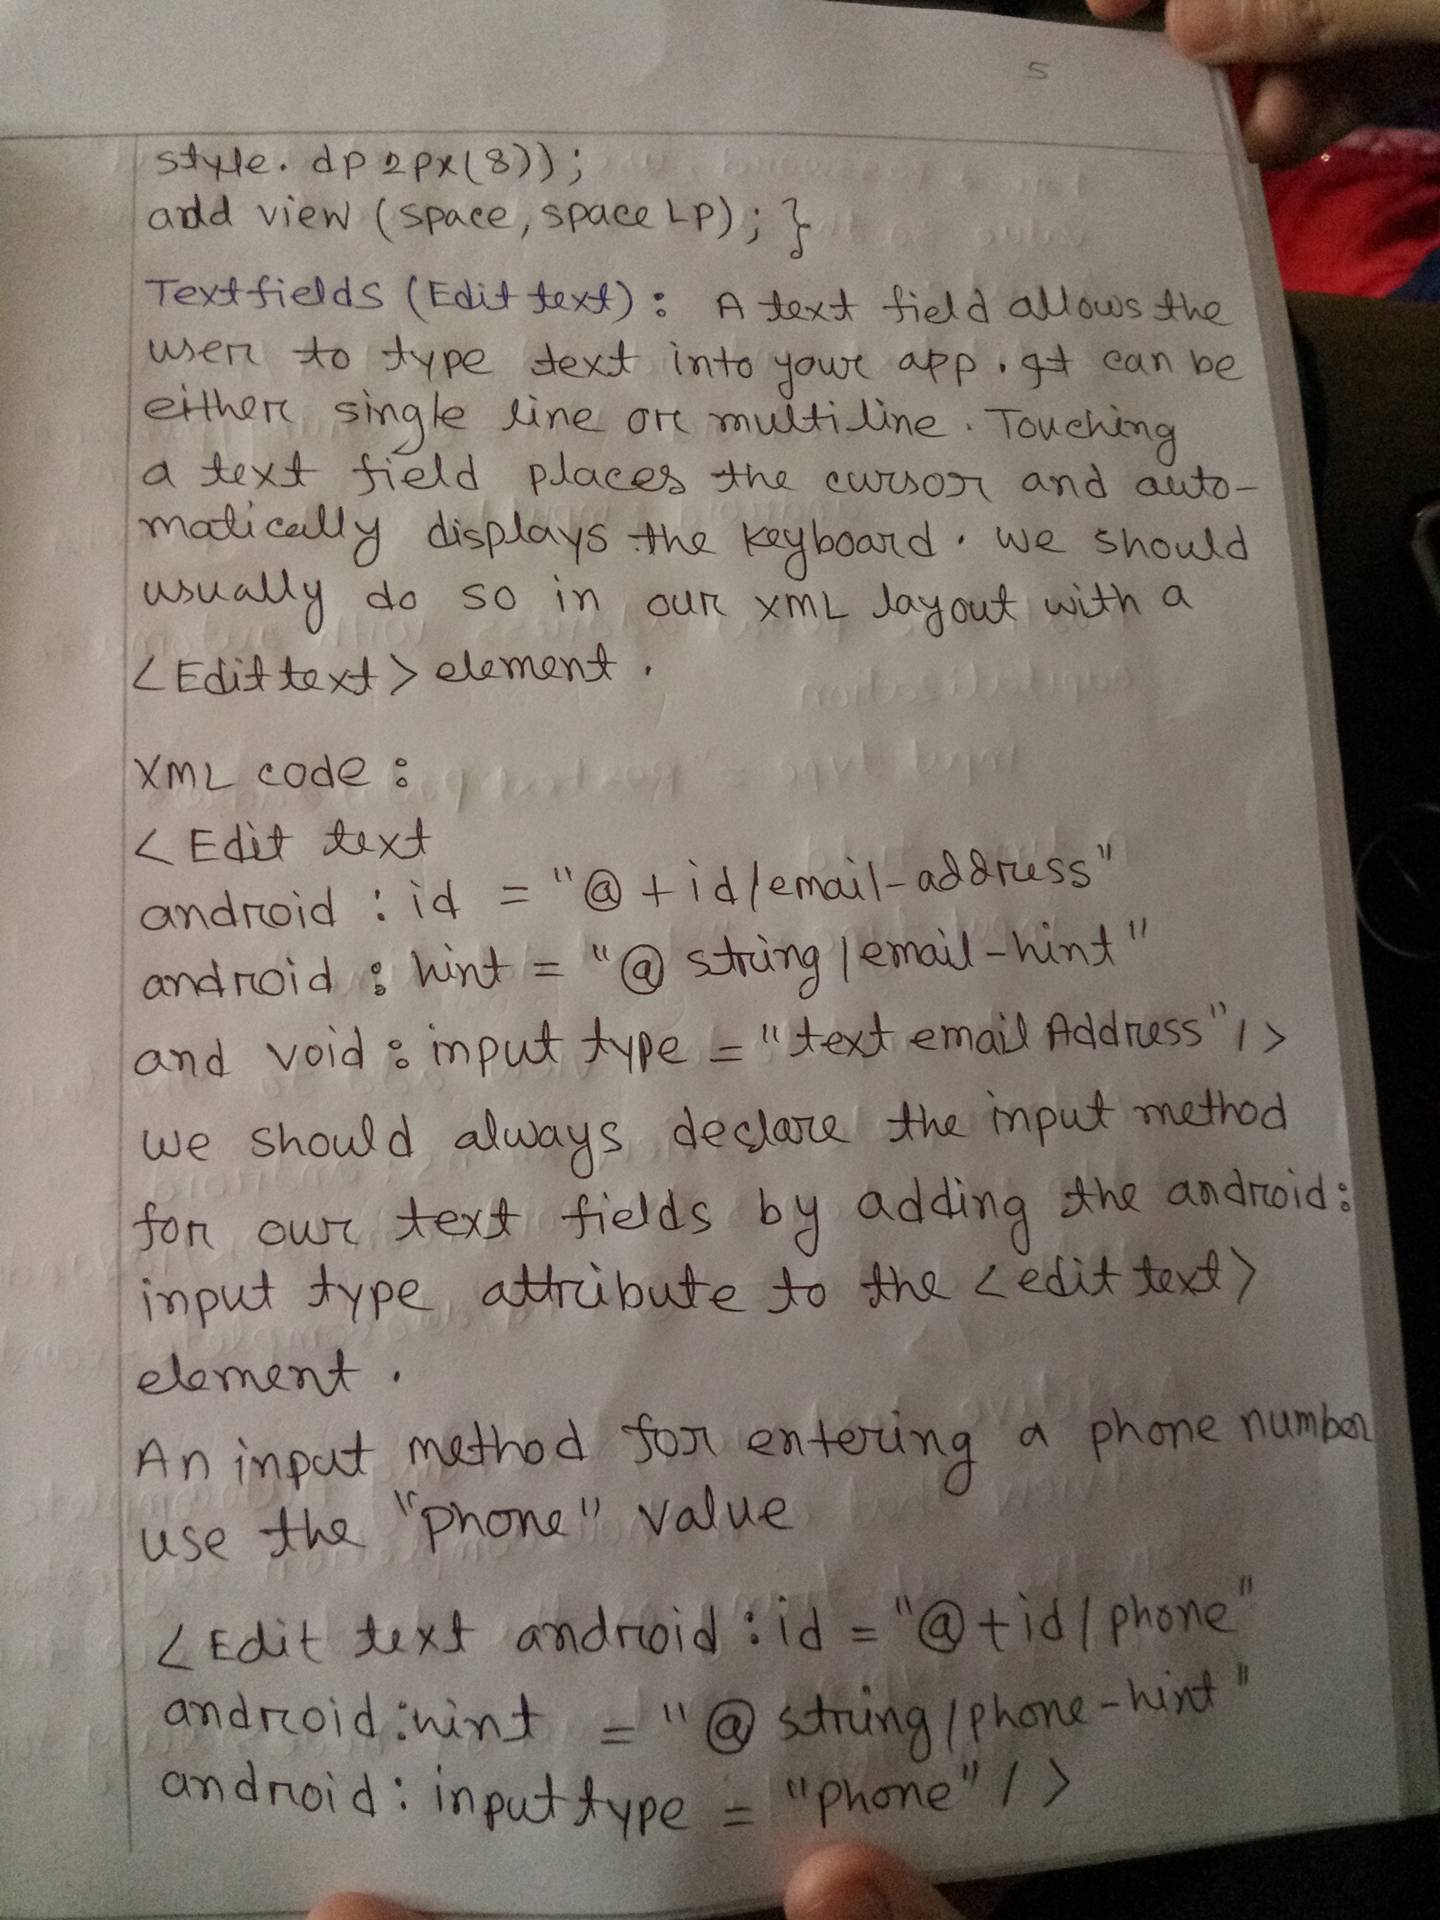 5
style. dp2px(8));
add view (space, space LP); }
Textfields (Edit text) : A text field allows the
user to type text into your app. It can be
either single line or multiline. Touching
a text field places the cursor and auto-
matically displays the keyboard. we should
usually do so in our XML layout with a
<Edit text> element.
XML code :
< Edit text
android : id = "@ + id/email-address"
android : hint = "@ string/email-hint"
and void : input type = "text email Address"/>
we should always declare the input method
for our text fields by adding the android:
input type attribute to the <edit text>
element.
An input method for entering a phone number
use the "phone" value
<Edit text android : id = "@+id/phone"
android:hint = "@ string/phone-hint"
android : input type = "phone"/>